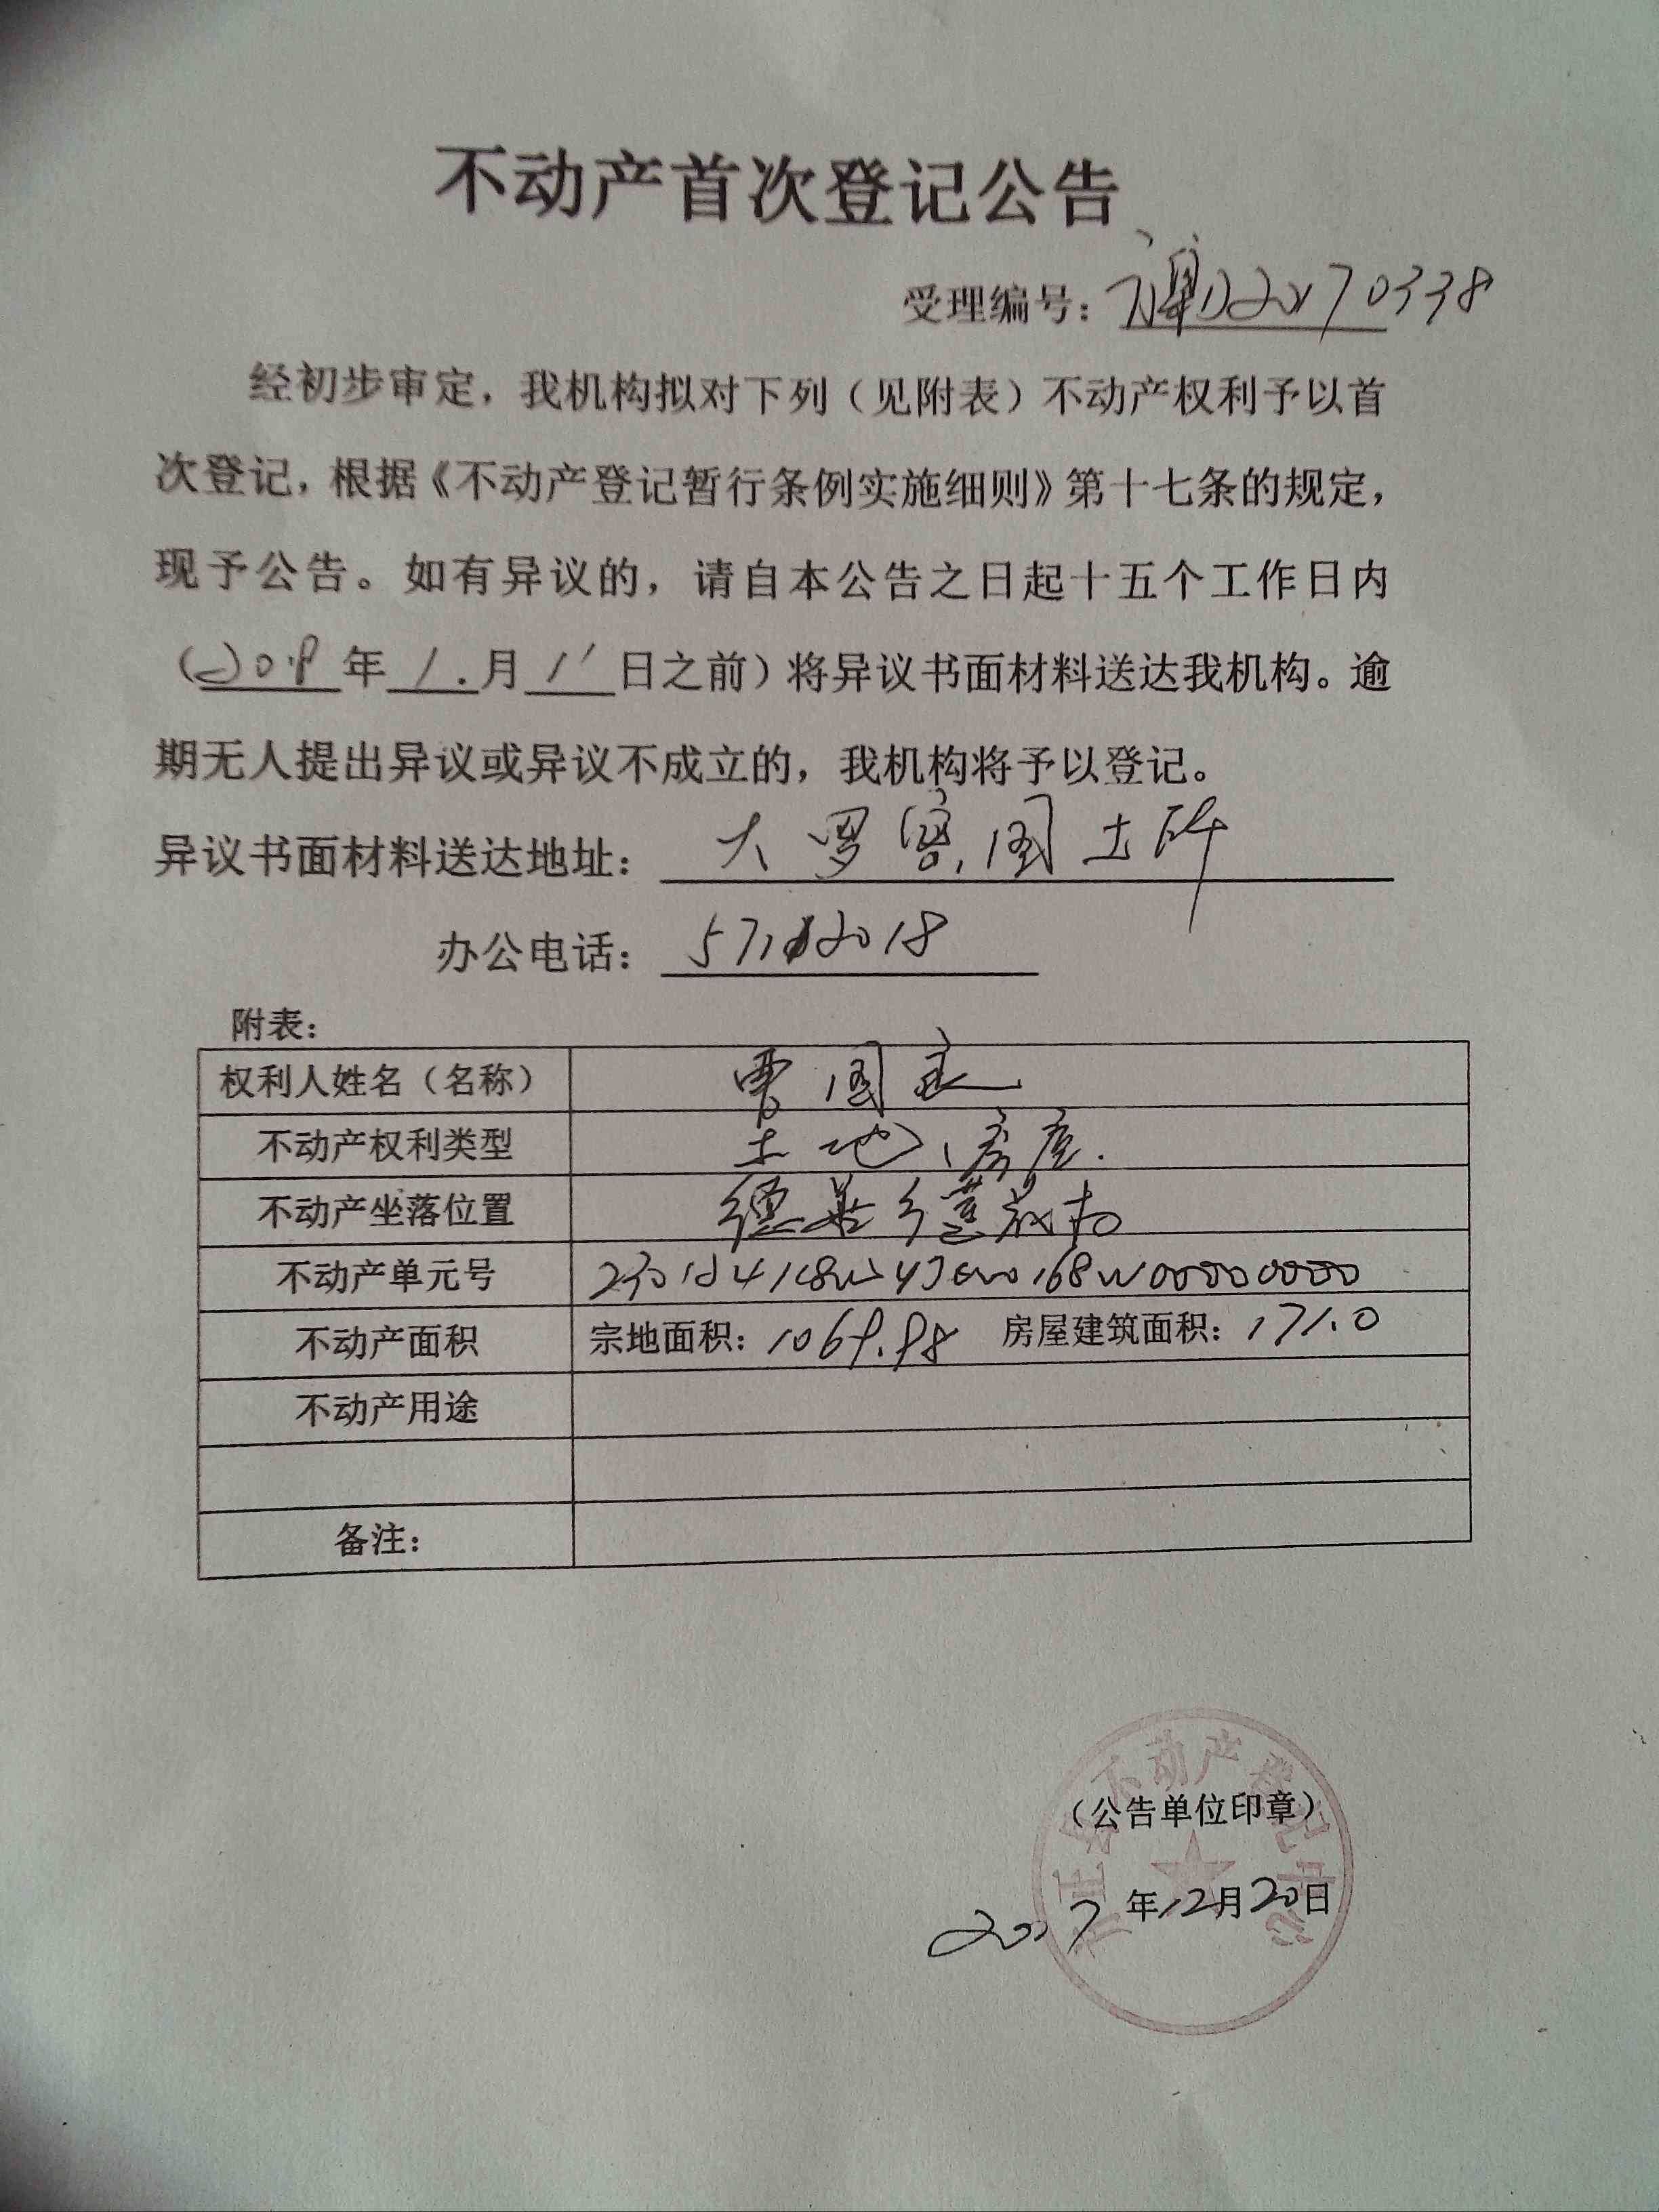 不动产首次登记公告
受理编号：20170338
经初步审定，我机构拟对下列（见附表）不动产权利予以首
次登记，根据《不动产登记暂行条例实施细则》第十七条的规定，
现予公告。如有异议的，请自本公告之日起十五个工作日内
（2018年1月11日之前）将异议书面材料送达我机构。逾
期无人提出异议或异议不成立的，我机构将予以登记。
异议书面材料送达地址：大罗密国土所
办公电话：
附表：
权利人姓名（名称） 曹国
不动产权利类型 土地、房屋.
不动产坐落位置 德善乡
不动产单元号
不动产面积 宗地面积：1069.98 房屋建筑面积：171.0
不动产用途
备注：
不动产登记中心
（公告单位印章）
2017年12月20日